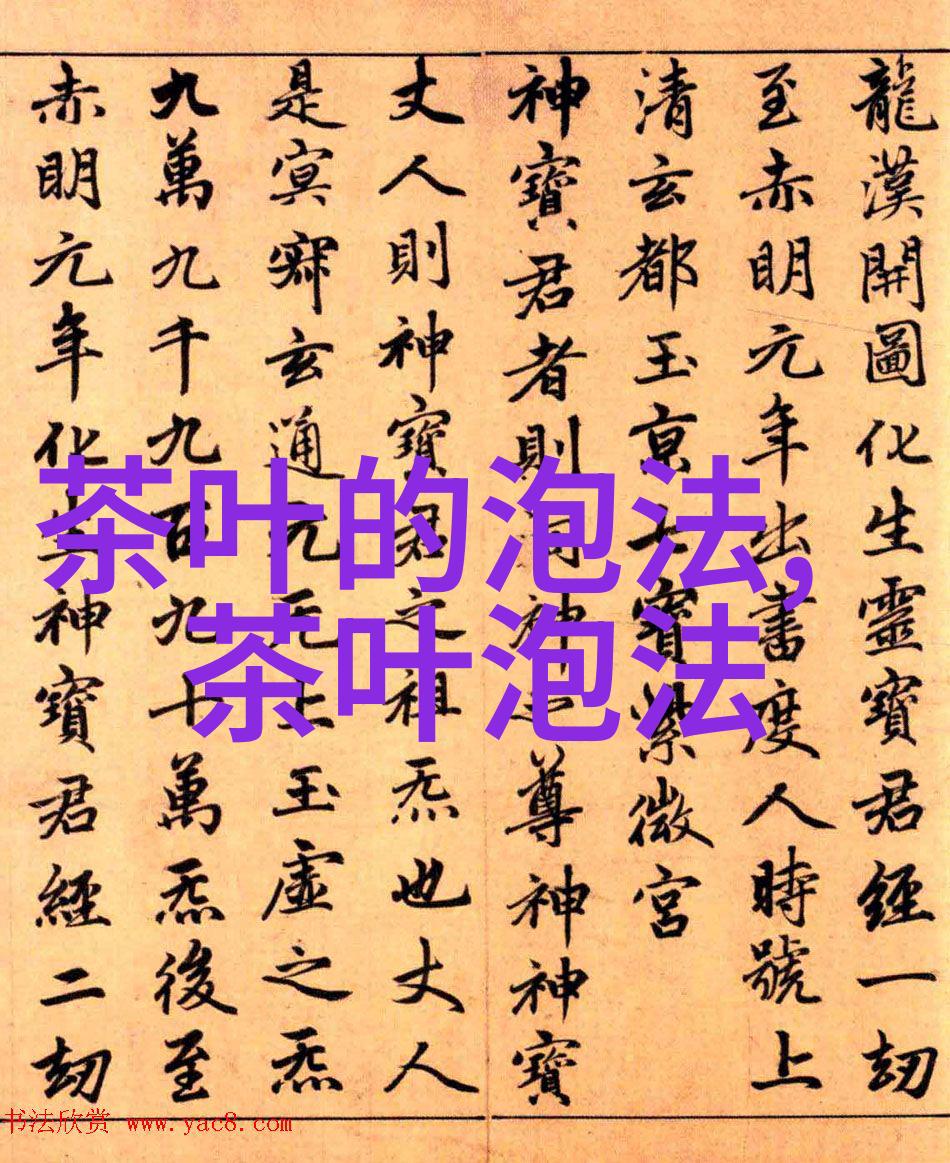 龍漢開圖化生靈寶君經一劫
至赤明元年出書度人時號上
清玄都玉京七寶紫微宮
神寶君者則洞神之尊神神寶
丈人則神寶君之祖炁也丈人
是冥寂玄通元无上玉虛之炁
九萬九千九百九十萬炁後至
赤明元年化生神寶君經二劫
茶叶的泡法,
茶叶泡法
书法欣赏 www.yac8.com